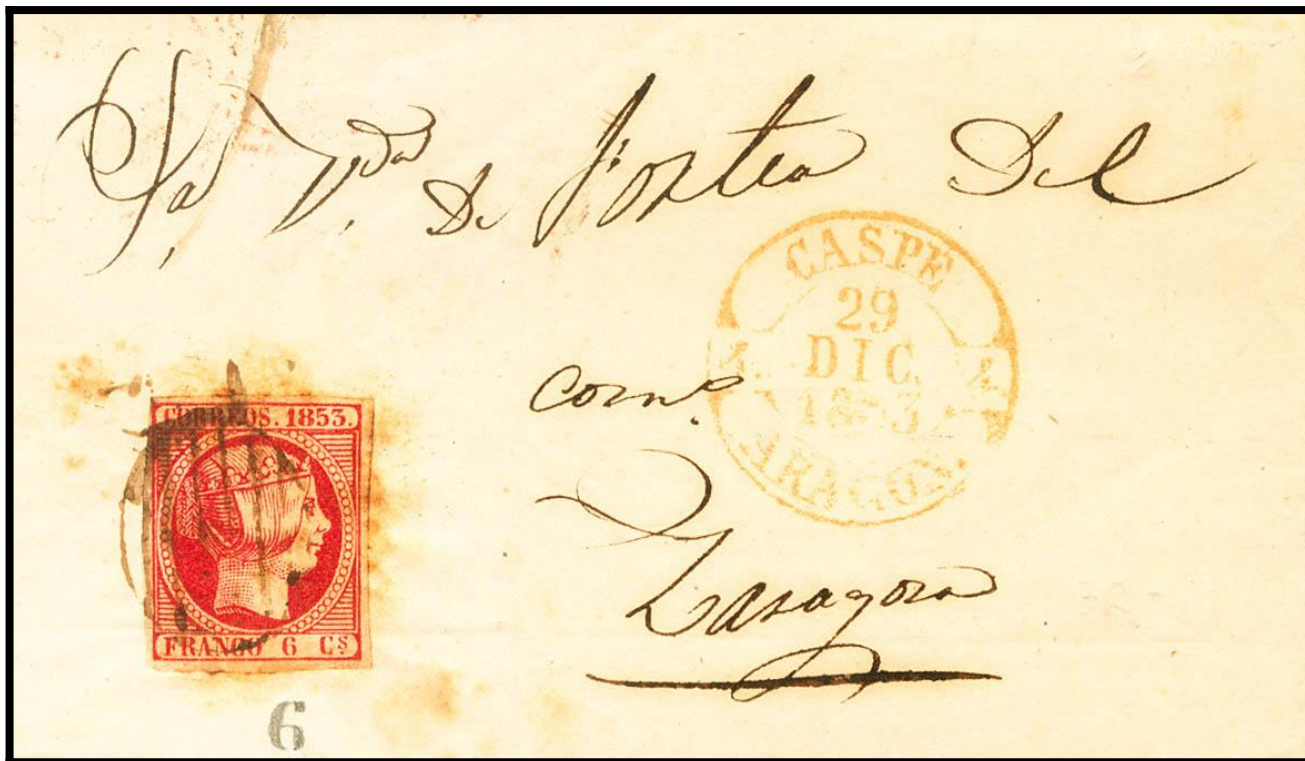 Sra. V.da De Fortea Del
CASPE
29
DIC.
1853
ARAGON.
com.o
Zaragoza
CORREOS. 1853.
FRANCO 6 Cs
6